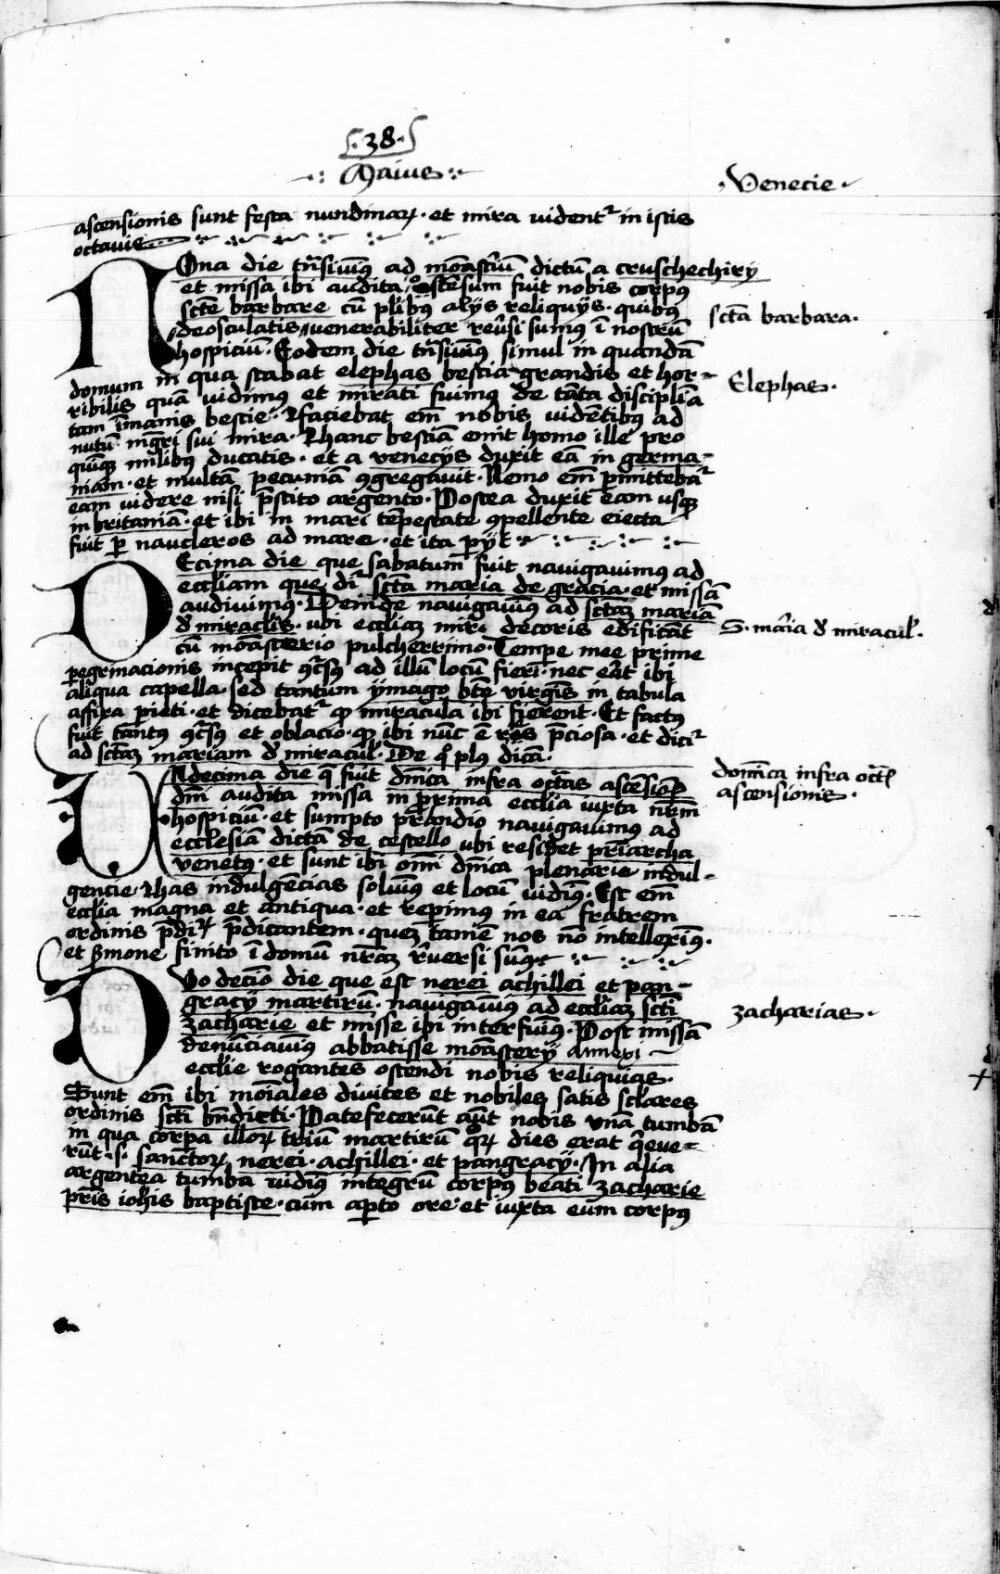 .38.
Maius
Venecie
ascensionis sunt festa nundinaꝝ. et mira vident᷑ in istis
octavis
Nona die trāsivimꝰ ad monasteriū dictū a cruschechiry
et missa ibi audita, ostēsum fuit nobis corpꝰ
sctē barbare cū plibꝰ alijs reliquijs. quibus
deosculatis venerabiliter reūsi sumꝰ ī nostrū
sctā barbara.
hospiciū. Eodem die trāsivimꝰ simul in quandā
domum in qua stabat elephas bestia grandis et hor-
Elephas.
ribilis quā vidimꝰ et mirati fuimꝰ de tāta disciplīa
tam īmanis bestie. Nam faciebat em̄ nobis vidētibꝰ ad
nutū mgr̄i sui mira. Hanc bestiā emit homo ille pro
quinqꝫ milibꝰ ducatis. et a venecijs duxit eā in germa-
niam. et multā pecuniā ꝯgregavit. Nemo em̄ pmittebat᷑
eam videre nisi p̄stito argento. Postea duxit eam usqꝫ
in britaniam. et ibi in mari tēpestate ꝯpellente eiecta
fuit ꝑ naucleros ad mare. et ita perijt
Decima die que sabatum fuit navigavimus ad
eccliam que dr̄ sctā maria de gracia. et missā
audivimus. Deinde navigavimꝰ ad sctāꝫ mariā
d' miracl'is. ubi eccliaꝫ miri decoris edificāt
S. maria d' miracul'.
cū monasterio pulcherrimo. Tempe mee prime
ꝑegrinacionis incepit ꝯcursꝰ ad illū locū fieri. nec erāt ibi
aliqua capella sed tantum ymago bt̄e virgīs in tabula
affixa pieti. et dicebat᷑ ꝙ miracula ibi fierent. Et factꝰ
fuit tantꝰ ꝯcursꝰ et oblacio. ꝙ ibi nūc ē res p̄ciosa. et dicit᷑
ad sctāꝫ mariam d' miracul'. De qͦ plꝰ dicā.
Undecima die q̄ fuit dn̄ica infra octās ascensiōis
domīca infra octās
dn̄i audita missa in prima ecclia iuxta nr̄m
ascensionis.
hospiciū. et sumpto prandio navigavimus ad
ecclesiā dictā de castello ubi residet pr̄iarcha
venetꝰ. et sunt ibi omī dn̄ica plenarie indul-
gencie. Has indulgēcias solvimꝰ et locū vidimꝰ. Est em̄
ecclia magna et antiqua. et repimus in ea fratrem
ordinis p̄dicatoꝝ p̄dicantem. queꝫ tamē nos nō intelleximꝰ.
et s̄mone finito ī domū nr̄aꝫ r̄versi sumꝰ
Duodecīo die que est nerei achillei et pan-
gracij martirū. navigavimꝰ ad eccliaꝫ sctī
zacharie et misse ibi interfuimꝰ. Post missā
zacharias.
denūciavimus abbatisse monasterij annexi
ecclie rogantes ostendi nobis reliquias.
Sunt em̄ ibi moniales divites et nobiles satis sclares
ordinis sctī bn̄dicti. Patefecerūt aūt nobis unā tumbā
in qua corpa illoꝝ triū martirū qͦꝝ dies erat q̄ eve-
rūt. s. sanctoꝝ nerei. achillei. et pangracij. In alia
argentea tumba vidimꝰ integrū corpus beati zacharie
pr̄is ioh̄is baptiste. cum apto ore et iuxta eum corpꝰ